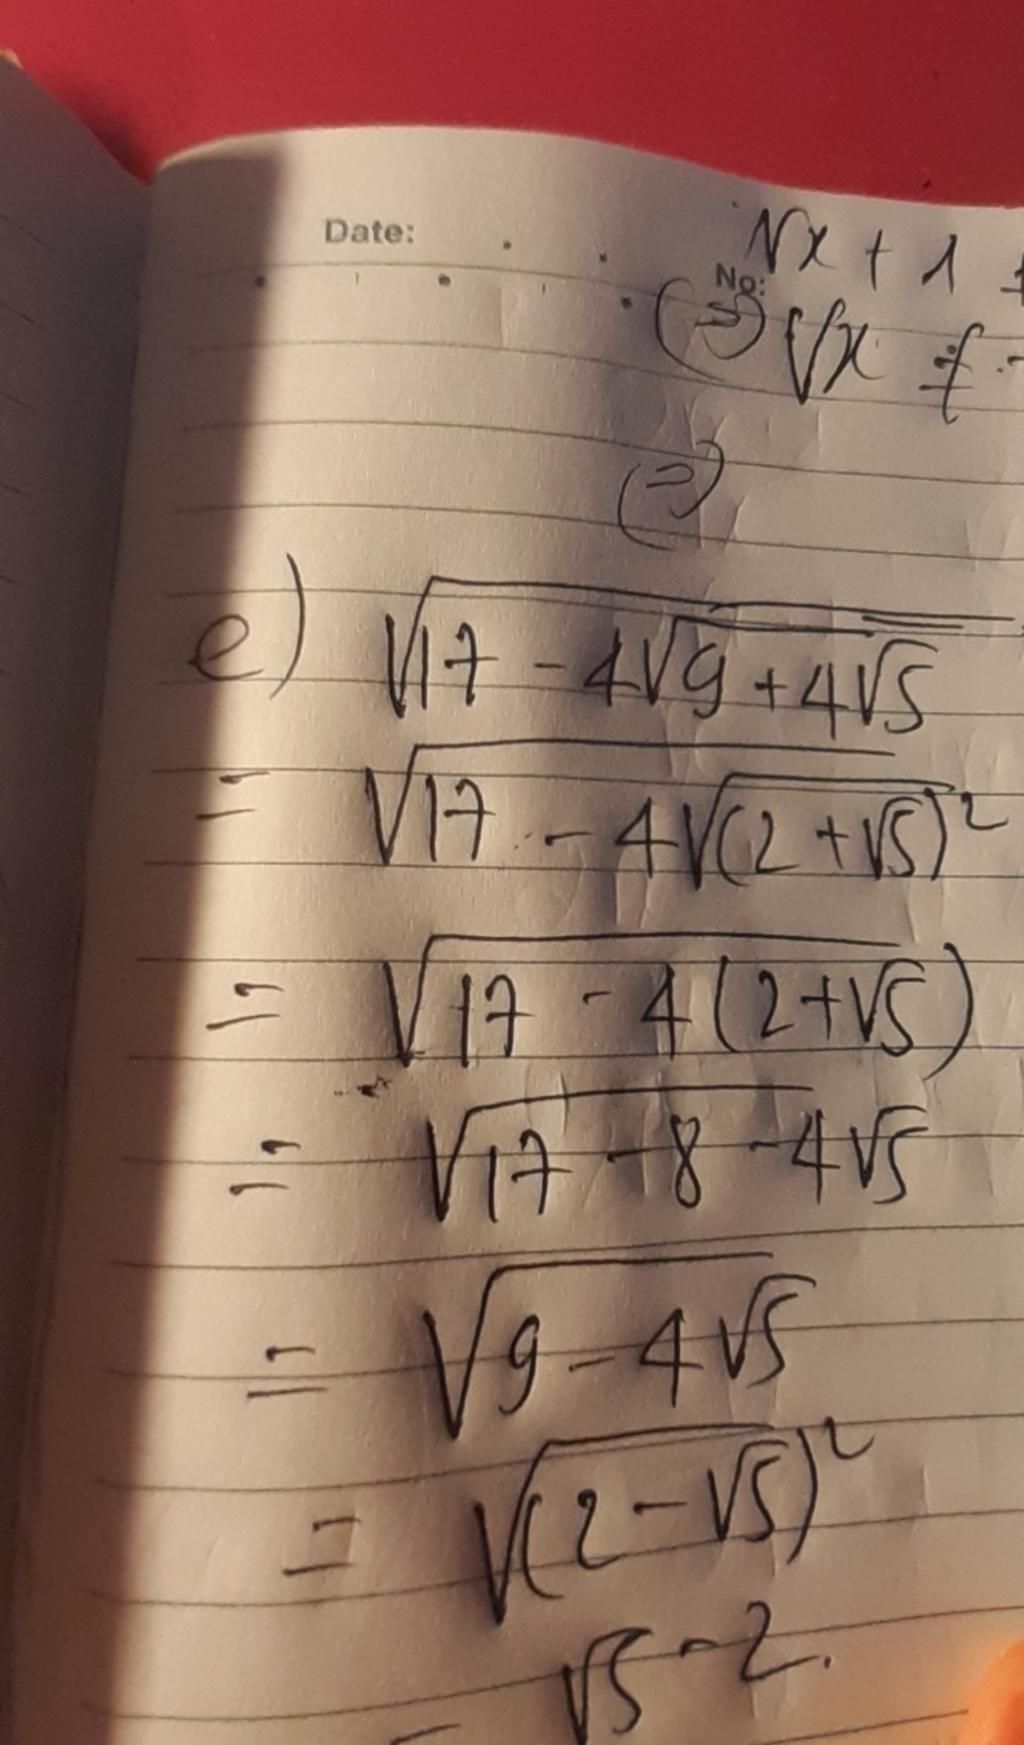 Date:
√x + 1
No:
(=) √x ≠
(=)
e) √17 - 4√9 + 4√5
= √17 - 4√(2 + √5)²
= √17 - 4(2+√5)
= √17 - 8 - 4√5
= √9 - 4√5
= √(2 - √5)²
= √5 - 2.